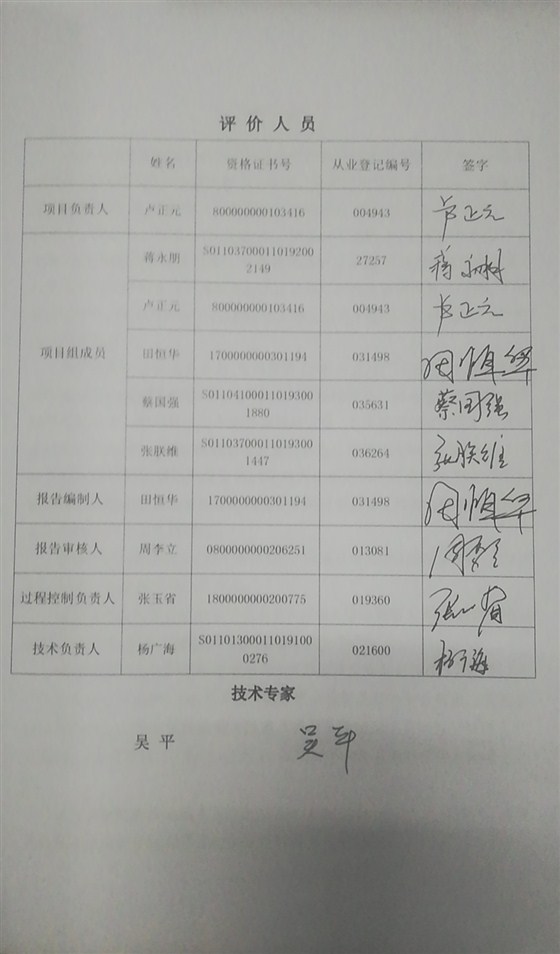 评价人员
姓名 资格证书号 从业登记编号 签字
项目负责人 卢正元 800000000103416 004943 卢正元
项目组成员
蒋永朋 S011037000110192002149 27257
卢正元 800000000103416 004943 卢正元
田恒华 1700000000301194 031498 田恒华
蔡国强 S011041000110193001880 035631 蔡国强
张朕维 S011037000110193001447 036264 张朕维
报告编制人 田恒华 1700000000301194 031498 田恒华
报告审核人 周李立 0800000000206251 013081 周李立
过程控制负责人 张玉省 1800000000200775 019360
技术负责人 杨广海 S011013000110191000276 021600 杨广海
技术专家
吴平 吴平